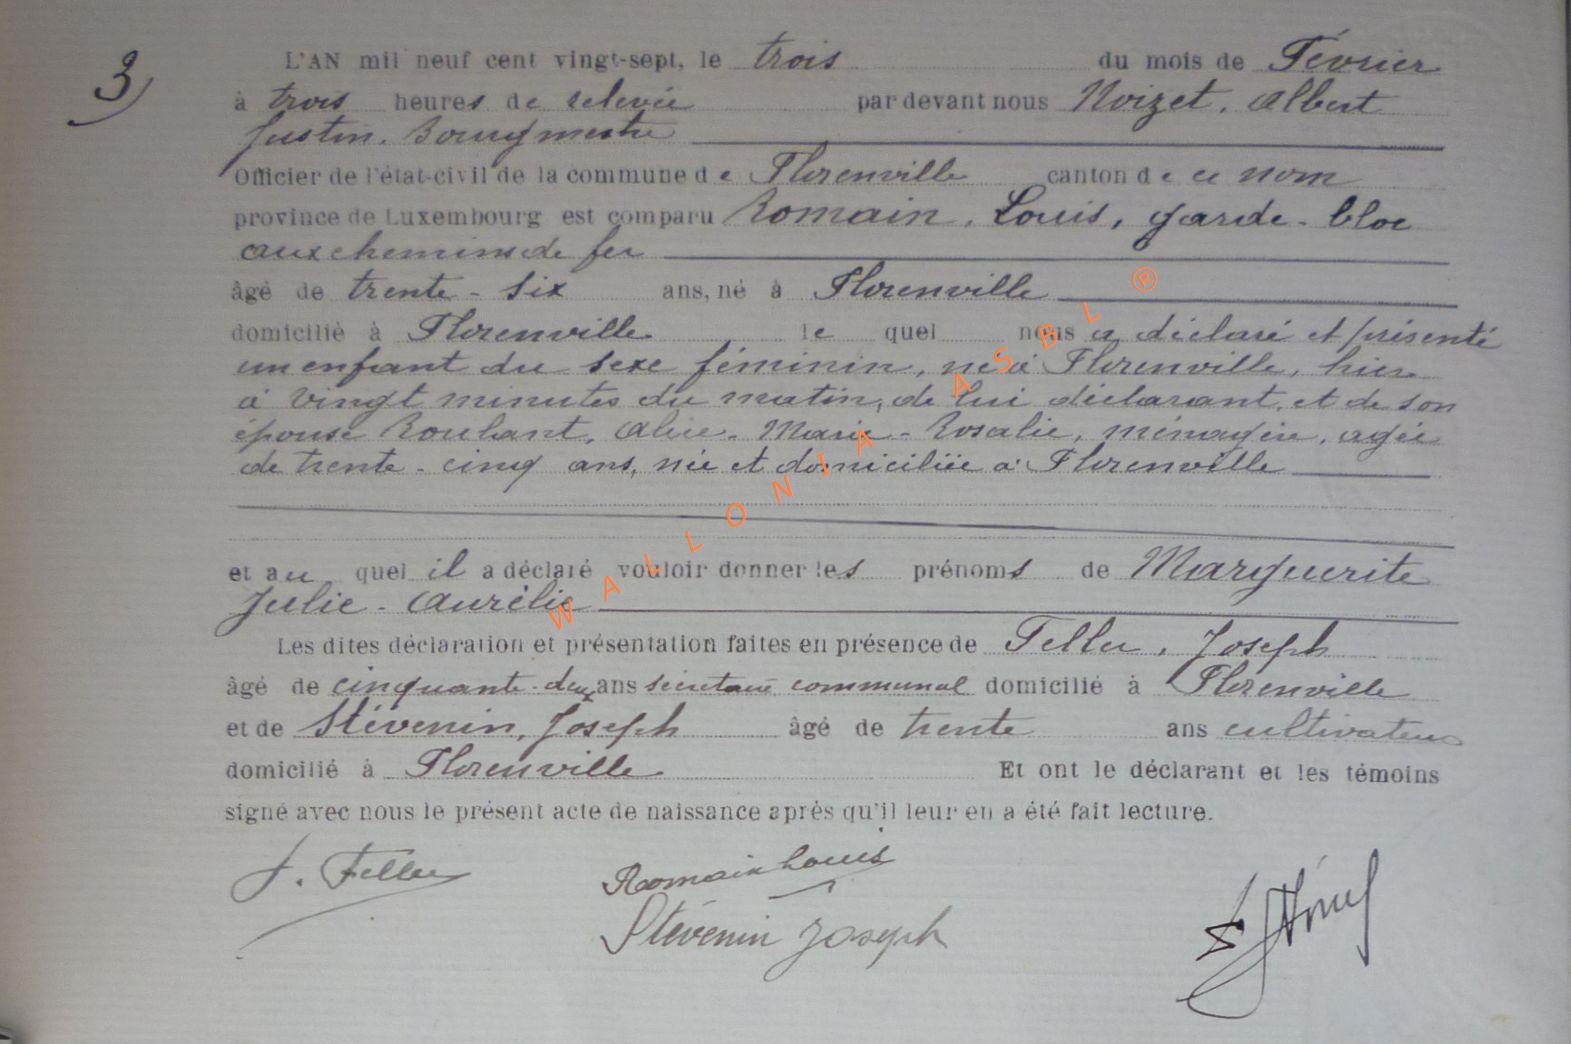 3)
L'AN mil neuf cent vingt-sept, le trois du mois de Février
à trois heures de relevée par devant nous Noizet, Albert
Justin, Bourgmestre
Officier de l'état-civil de la commune de Florenville canton de ce nom
province de Luxembourg est comparu Romain, Louis, garde-bloc
aux chemins de fer
âgé de trente-six ans, né à Florenville
domicilié à Florenville le quel nous a déclaré et présenté
un enfant du sexe féminin, né à Florenville, hier
à vingt minutes du matin, de lui déclarant, et de son
épouse Roulant, Alice-Marie-Rosalie, ménagère, agée
de trente-cinq ans, née et domiciliée à Florenville
et au quel il a déclaré vouloir donner les prénoms de Marguerite
Julie-Aurélie
Les dites déclaration et présentation faites en présence de Feller, Joseph
âgé de cinquante-deux ans secrétaire communal domicilié à Florenville
et de Stévenin, Joseph âgé de trente ans cultivateur
domicilié à Florenville Et ont le déclarant et les témoins
signé avec nous le présent acte de naissance après qu'il leur en a été fait lecture.
J. Feller Romain Louis
Stévenin Joseph
WALLONIA ASBL ®